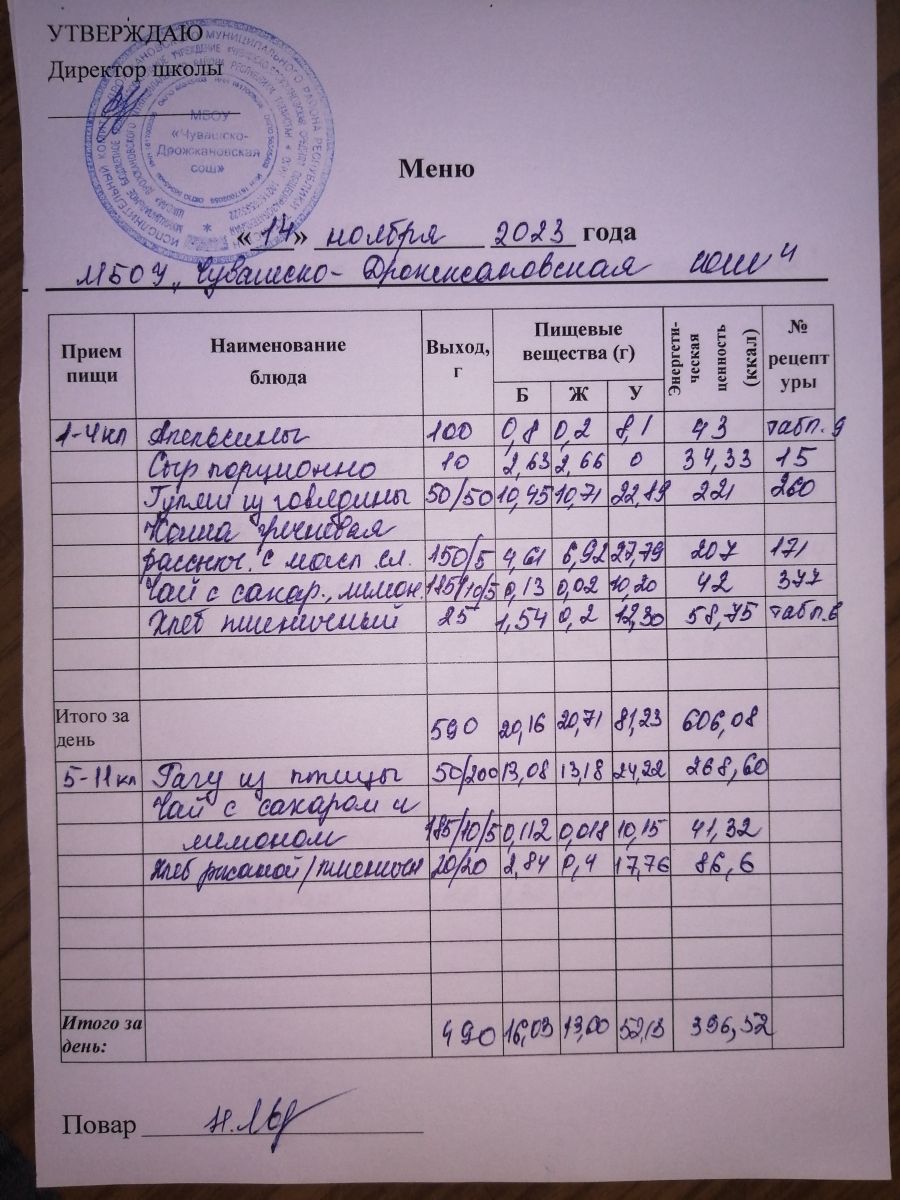 УТВЕРЖДАЮ
Директор школы
МБОУ
«Чувашско-
Дрожжановская
сош»
Меню
«14» ноября 2023 года
МБОУ „Чувашско-Дрожжановская сош"
Прием пищи Наименование блюда Выход, г Пищевые вещества (г) Энергети-ческая ценность (ккал) № рецептуры
Б Ж У
1-4 кл Апельсины 100 0,8 0,2 8,1 43 табл. 9
Сыр порционно 10 2,63 2,66 0 34,33 15
Гуляш из говядины 50/50 10,45 10,71 22,89 221 260
Каша гречневая
рассып. с масл сл. 150/5 4,61 6,92 27,79 207 171
Чай с сахар., лимон. 185/10/5 0,13 0,02 10,20 42 377
Хлеб пшеничный 25 1,54 0,2 12,30 58,75 табл. 6
Итого за день 590 20,16 20,71 81,23 606,08
5-11 кл Рагу из птицы 50/200 13,08 13,18 24,22 268,60
Чай с сахаром и
лимоном 185/10/5 0,112 0,018 10,15 41,32
Хлеб ржаной/пшеничн 20/20 2,84 0,4 17,76 86,6
Итого за день: 490 16,03 13,60 52,13 396,52
Повар